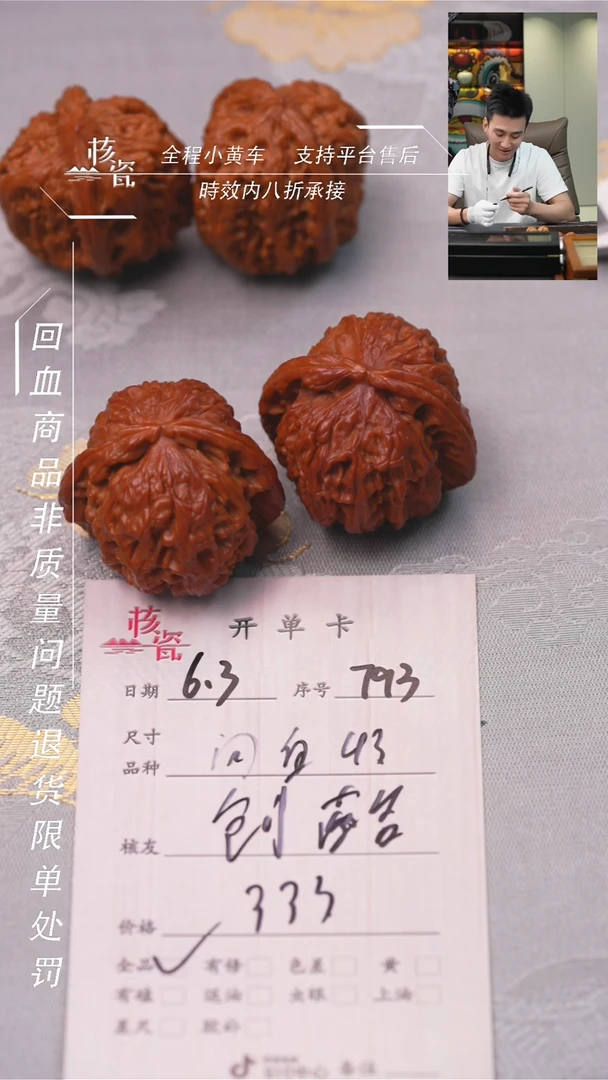 核瓷
全程小黄车 支持平台售后
時效内八折承接
回血商品非质量问题退货限单处罚
核瓷 开单卡
日期 6.3 序号 793
尺寸
品种 43
核友
价格 333
全品 有修 色差 黄
有磕 送油 虫眼 上油
差尺 胶补